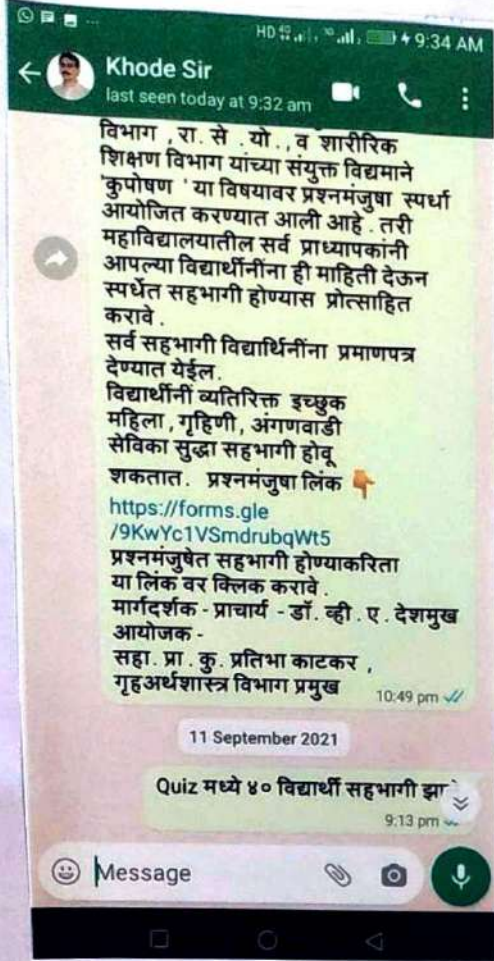 HD 9:34 AM
Khode Sir
last seen today at 9:32 am
विभाग , रा. से . यो . , व शारीरिक
शिक्षण विभाग यांच्या संयुक्त विद्यमाने
'कुपोषण ' या विषयावर प्रश्नमंजुषा स्पर्धा
आयोजित करण्यात आली आहे . तरी
महाविद्यालयातील सर्व प्राध्यापकांनी
आपल्या विद्यार्थीनींना ही माहिती देऊन
स्पर्धेत सहभागी होण्यास प्रोत्साहित
करावे .
सर्व सहभागी विद्यार्थिनींना प्रमाणपत्र
देण्यात येईल.
विद्यार्थीनीं व्यतिरिक्त इच्छुक
महिला , गृहिणी , अंगणवाडी
सेविका सुद्धा सहभागी होवू
शकतात . प्रश्नमंजुषा लिंक 👇
https://forms.gle
/9KwYc1VSmdrubqWt5
प्रश्नमंजुषेत सहभागी होण्याकरिता
या लिंक वर क्लिक करावे .
मार्गदर्शक - प्राचार्य - डॉ. व्ही . ए . देशमुख
आयोजक -
सहा. प्रा . कु . प्रतिभा काटकर ,
गृहअर्थशास्त्र विभाग प्रमुख
10:49 pm
11 September 2021
Quiz मध्ये ४० विद्यार्थी सहभागी
9:13 pm
Message